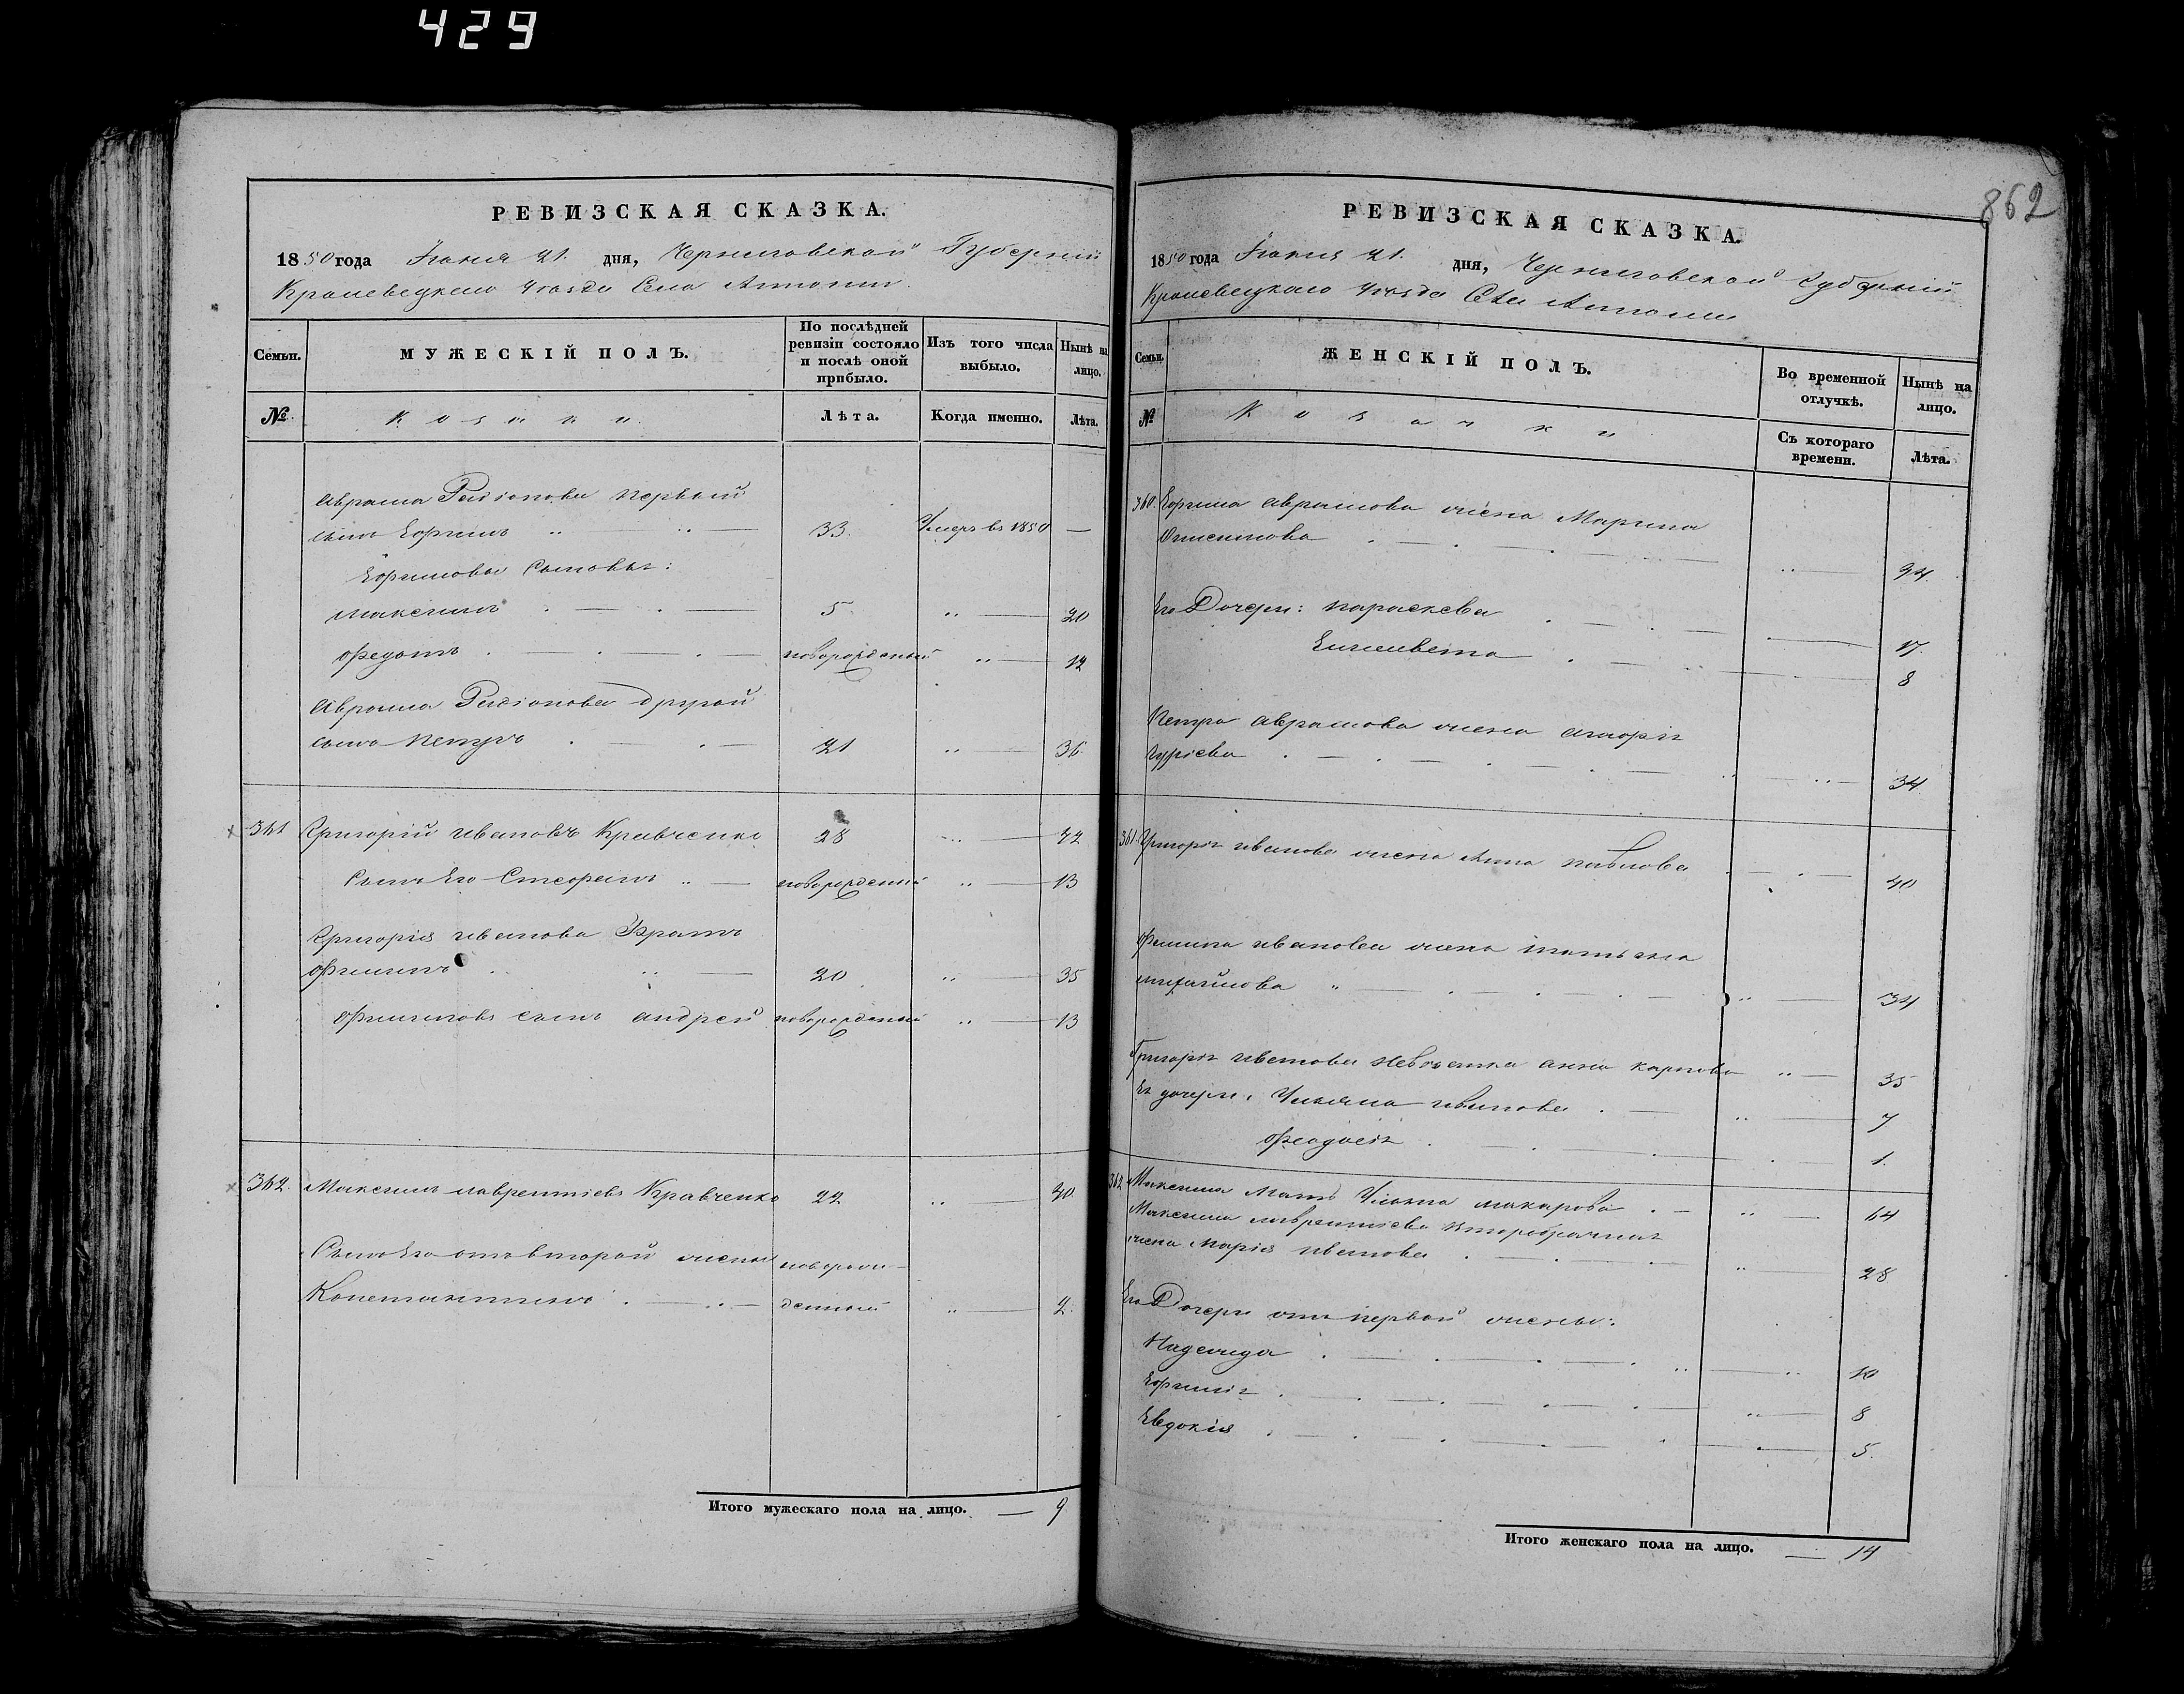 429
862
РЕВИЗСКАЯ СКАЗКА.
1850 года Іюня 21. дня, Черниговской Губерніи
Кролевецкаго уѣзда Села
Семьи. МУЖЕСКІЙ ПОЛЪ. По послѣдней ревизіи состояло и послѣ оной прибыло. Изъ того числа выбыло. Нынѣ на лицо.
№ Козаки. Лѣта. Когда именно. Лѣта.
Аврама Родіонова первый
сынъ Ефримъ 33. Умеръ въ 1850 —
Ефримовы сыновья:
Максимъ 5 20
Федотъ новорожденный 12
Аврама Родіонова другой
сынъ Петръ 21 36.
361 Григорій Ивановъ Кравченко 28 42
Сынъ его новорожденный 13
Григорія Иванова Братъ
Филипъ 20 35
Филиповъ сынъ Андрей новорожденный 13
362. Максимъ Лаврентіевъ Кравченко 22 40.
Сынъ его отъ второй жены новорож-
Константинъ денный 2.
Итого мужескаго пола на лицо. — 9
РЕВИЗСКАЯ СКАЗКА.
1850 года Іюня 21. дня, Черниговской Губерніи
Кролевецкаго уѣзда Села
Семьи. ЖЕНСКІЙ ПОЛЪ. Во временной отлучкѣ. Нынѣ на лицо.
№ Козачки Съ котораго времени. Лѣта.
360. Ефрима Аврамова жена Марина
34.
Его Дочери: Параскева 17.
Елисавета 8
Петра Аврамова жена
Гуріева 34.
361. Григорія Иванова жена Анна Павлова 40
Филипа Иванова жена Татьяна
Михайлова 34
Григорія Иванова невѣстка Анна Карпова 35
Ея дочери, Ульяна Иванова 7
Феодосія 1.
362. Максима мать Ульяна Макарова 64
Максима Лаврентіева второбрачная
жена Марія Иванова 28
Его Дочери отъ первой жены:
Надежда 10
Ефимія 8
Евдокія 5.
Итого женскаго пола на лицо. — 14